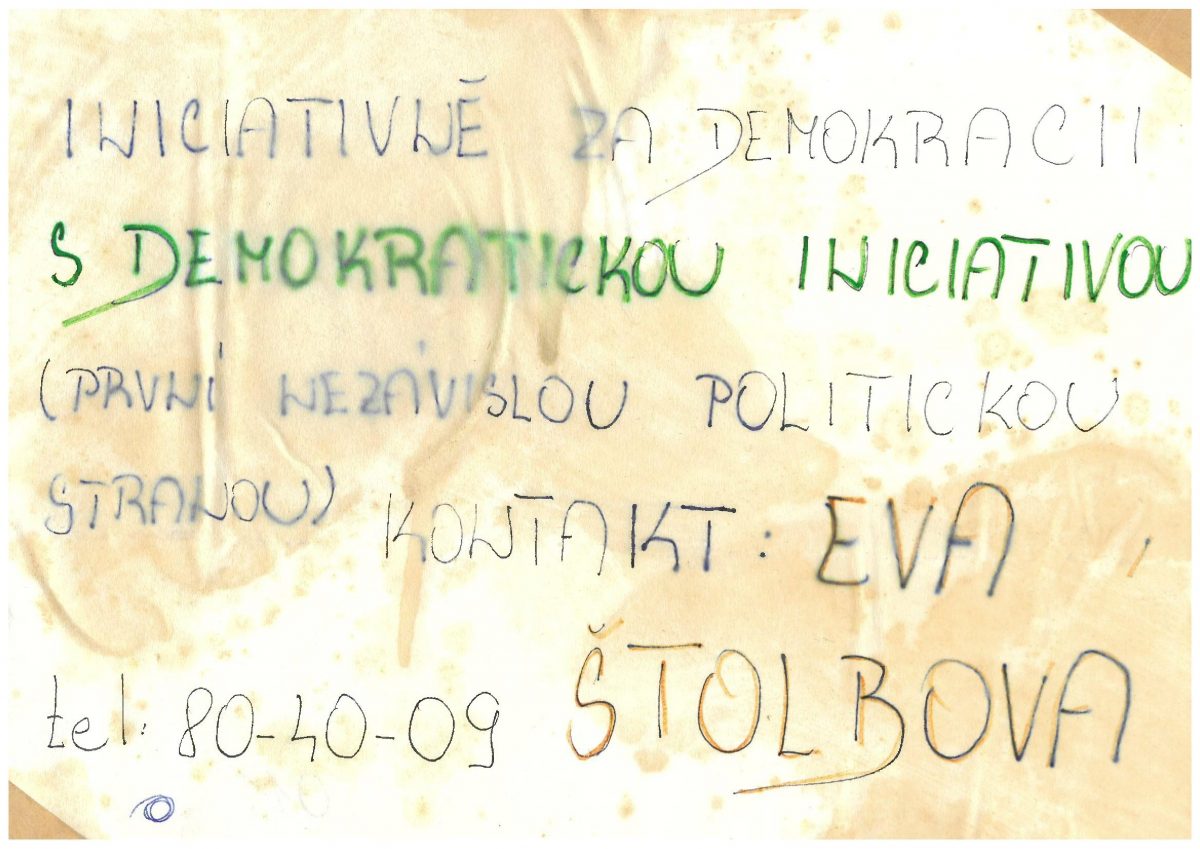 INICIATIVNĚ ZA DEMOKRACII
S DEMOKRATICKOU INICIATIVOU
(PRVNÍ NEZÁVISLOU POLITICKOU
STRANOU) KONTAKT: EVA
ŠTOLBOVA
tel: 80-40-09